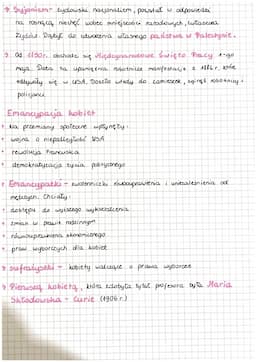 Syjonizm - żydowski nacjonalizm, powstał w odpowiedzi
na rosnącą niechęć wobec mniejszości narodowych, zwłaszcza
Żydów. Dążyli do utworzenia własnego państwa w Palestynie.
Od 1890r. obchodzi się Międzynarodowe Święto Pracy 1-go
maja. Data ta upamiętnia robotnicze manifestacje z 1886 r., które
odbywały się w USA. Doszło wtedy do zamieszek, zginęli robotnicy i
policjanci.
Emancypacja kobiet
Na przemiany społeczne wpłynęły:
wojna o niepodległość USA
rewolucja francuska
demokratyzacja życia politycznego
Emancypantki - zwolenniczki równouprawnienia i uniezależnienia od
mężczyzn. Chciały:
dostępu do wyższego wykształcenia
zmian w prawie rodzinnym
równouprawnienia ekonomicznego
praw wyborczych dla kobiet
Sufrażystki - kobiety walczące o prawa wyborcze
Pierwszą kobietą, która zdobyła tytuł profesora była Maria
Skłodowska - Curie (1906r.)